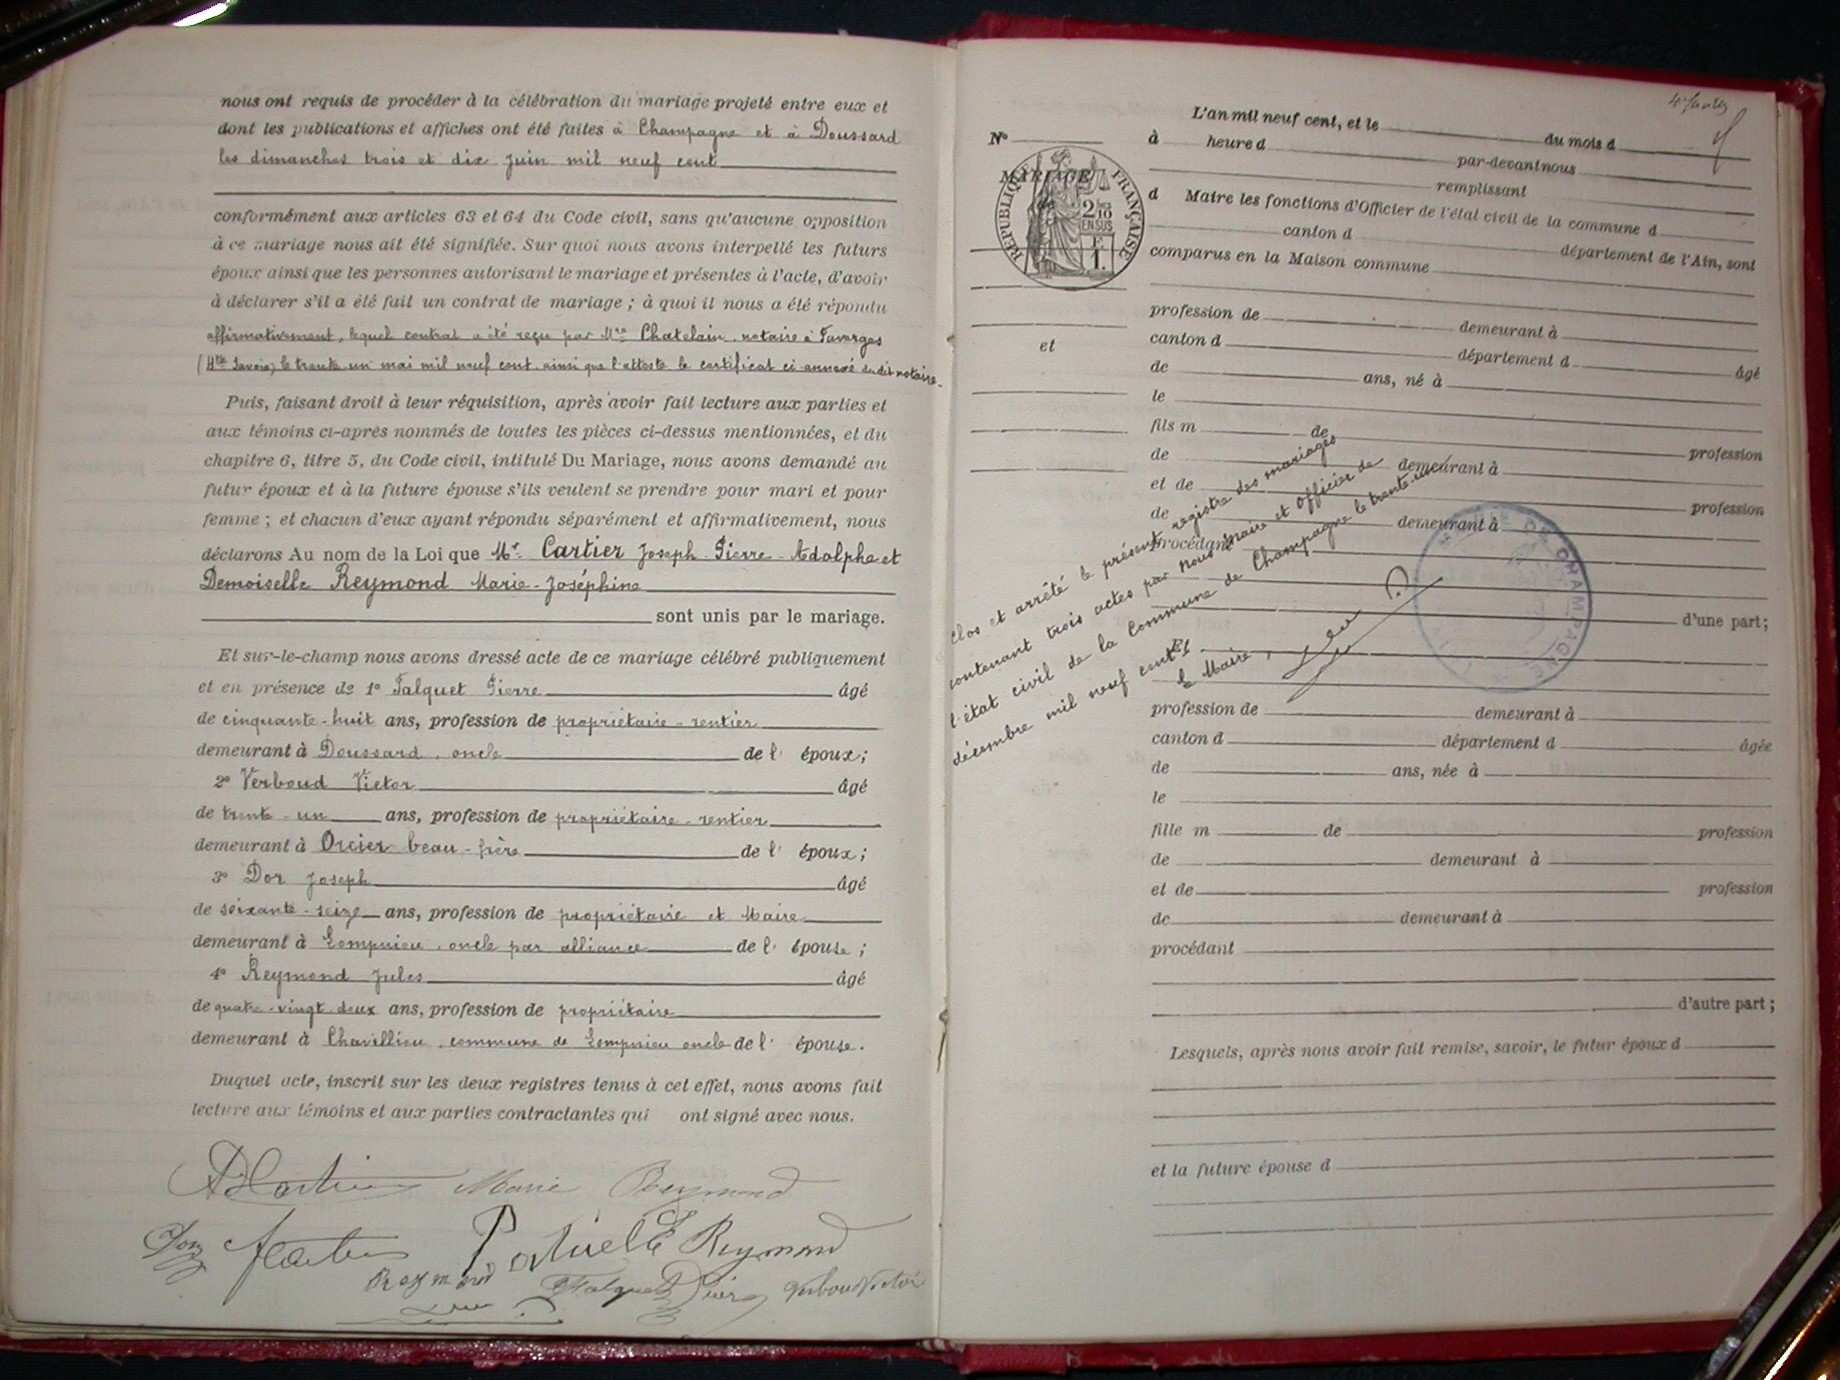 nous ont requis de procéder à la célébration du mariage projeté entre eux et
dont les publications et affiches ont été faites à Champagne et à Doussard
les dimanches trois et dix juin mil neuf cent
conformément aux articles 63 et 64 du Code civil, sans qu'aucune opposition
à ce mariage nous ait été signifiée. Sur quoi nous avons interpellé les futurs
époux ainsi que les personnes autorisant le mariage et présentes à l'acte, d'avoir
à déclarer s'il a été fait un contrat de mariage ; à quoi il nous a été répondu
affirmativement, lequel contrat a été reçu par Mre Chatelain, notaire à Faverges
(Hte Savoie) le trente un mai mil neuf cent ainsi que l'atteste le certificat ci-annexé dudit notaire.
Puis, faisant droit à leur réquisition, après avoir fait lecture aux parties et
aux témoins ci-après nommés de toutes les pièces ci-dessus mentionnées, et du
chapitre 6, titre 5, du Code civil, intitulé Du Mariage, nous avons demandé au
futur époux et à la future épouse s'ils veulent se prendre pour mari et pour
femme ; et chacun d'eux ayant répondu séparément et affirmativement, nous
déclarons Au nom de la Loi que Mr. Cartier Joseph-Pierre-Adolphe et
Demoiselle Reymond Marie-Joséphine
sont unis par le mariage.
Et sur-le-champ nous avons dressé acte de ce mariage célébré publiquement
et en présence de 1° Falquet Pierre âgé
de cinquante-huit ans, profession de propriétaire-rentier
demeurant à Doussard, oncle de l' époux ;
2° Verboud Victor âgé
de trente-un ans, profession de propriétaire-rentier
demeurant à Orcier beau-frère de l' époux ;
3° Dor Joseph âgé
de soixante-seize ans, profession de propriétaire et Maire
demeurant à Lompnieu, oncle par alliance de l' épouse ;
4° Reymond Jules âgé
de quatre-vingt-deux ans, profession de propriétaire
demeurant à Chavillieu, commune de Lompnieu oncle de l' épouse.
Duquel acte, inscrit sur les deux registres tenus à cet effet, nous avons fait
lecture aux témoins et aux parties contractantes qui ont signé avec nous.
Marie Reymond
Dor
Reymond
Reymond Falquet Pierre Verboud Victor
N°
MARIAGE
RÉPUBLIQUE FRANÇAISE
2/10 EN SUS
1 F.
et
L'an mil neuf cent, et le du mois d
à heure d par-devant nous
remplissant
d Maire les fonctions d'Officier de l'état civil de la commune d
canton d département de l'Ain, sont
comparus en la Maison commune
profession de demeurant à
canton d département d âgé
de ans, né à
le
fils m de
de demeurant à profession
et de
de demeurant à profession
procédant
d'une part ;
Et
Clos et arrêté le présent registre des mariages
contenant trois actes par Nous Maire et Officier de
l'état civil de la Commune de Champagne le trente-un
décembre mil neuf cent
Le Maire,
MAIRIE DE CHAMPAGNE
profession de demeurant à
canton d département d âgée
de ans, née à
le
fille m de profession
de demeurant à
et de profession
de demeurant à
procédant
d'autre part ;
Lesquels, après nous avoir fait remise, savoir, le futur époux d
et la future épouse d